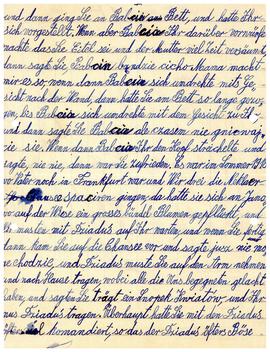 und dann ging Sie in Babcia Bett, und hatte Ihr
sich vorgestellt. Wenn aber Babcia Ihr darüber vorwürfe
machte das Sie Eitel sei und der Mutter viel Zeit versäumt
dann sagte Sie Babcia bądzie cicho Mama macht
mir es so, wenn dann Babcia sich umdrehte mit Ge-
sicht nach der Wand, dann hatte Sie am Bett so lange gezo-
gen, bis Babcia sich umdrehte mit dem Gesicht zu Ihr
und dann sagte Sie Babcia ale czasem nie gniewaj
sie. Wenn dann Babcia Ihr den Kopf streichelte und
sagte, nie nie, dann war Sie zufrieden. Es war im Sommer
Vater noch in Frankfurt war und Wir drei die
na spacer gingen, da hatte sie sich
auf der Wiese ein grosses bündel Blumen gepflückt, und
musten mit Triadus auf Ihr warten, und wenn sie fertig
dann kam Sie auf die Chaussee vor und sagte juz nie mo-
chodzic, und Triadus muste Sie auf den Arm nehmen
und nach Hause tragen, wobei alle die Uns begegneten gelacht
haben, und sagten Sie trägt ein Snopek Kwiatow und Ihr
Triadus tragen. Überhaupt hatte Sie mit den Triadus
komandiert, so das der Triadus öfters Böse